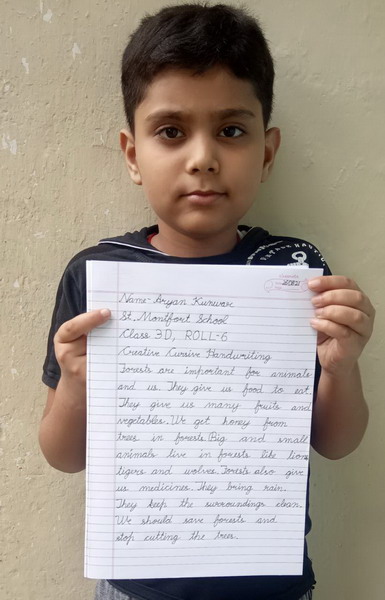 Name- Aryan Kunwar
St. Montfort School
Class 3D, ROLL-6
Creative Cursive Handwriting
Forests are important for animals
and us. They give us food to eat.
They give us many fruits and
vegetables. We get honey from
trees in forests. Big and small
animals live in forests like lions
tigers and wolves. Forests also give
us medicines. They bring rain.
They keep the surroundings clean.
We should save forests and
stop cutting the trees.